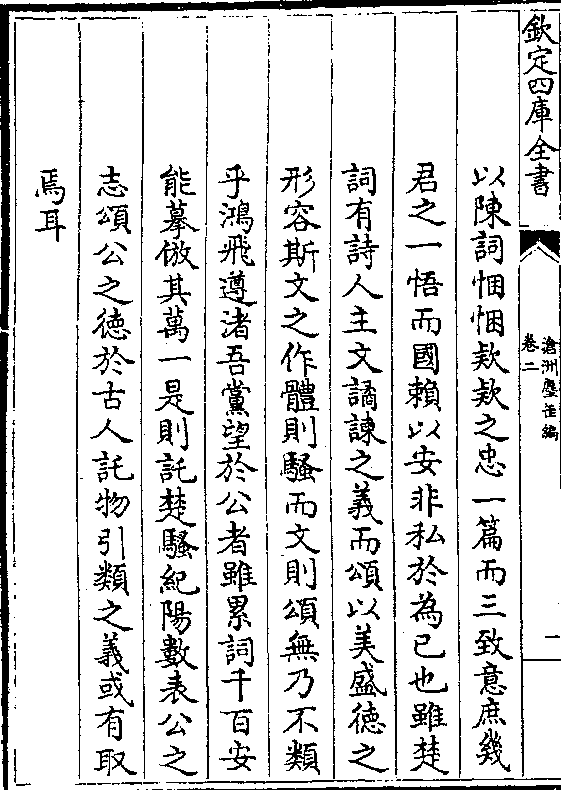 欽定四庫全書
滄洲塵缶編
卷二
一
以陳詞悃悃欵欵之忠一篇而三致意庶幾
君之一悟而國賴以安非私於為已也雖楚
詞有詩人主文譎諫之義而頌以美盛德之
形容斯文之作體則騷而文則頌無乃不類
乎鴻飛遵渚吾黨望於公者雖累詞千百安
能摹倣其萬一是則託楚騷紀陽數表公之
志頌公之徳於古人託物引類之義或有取
焉耳